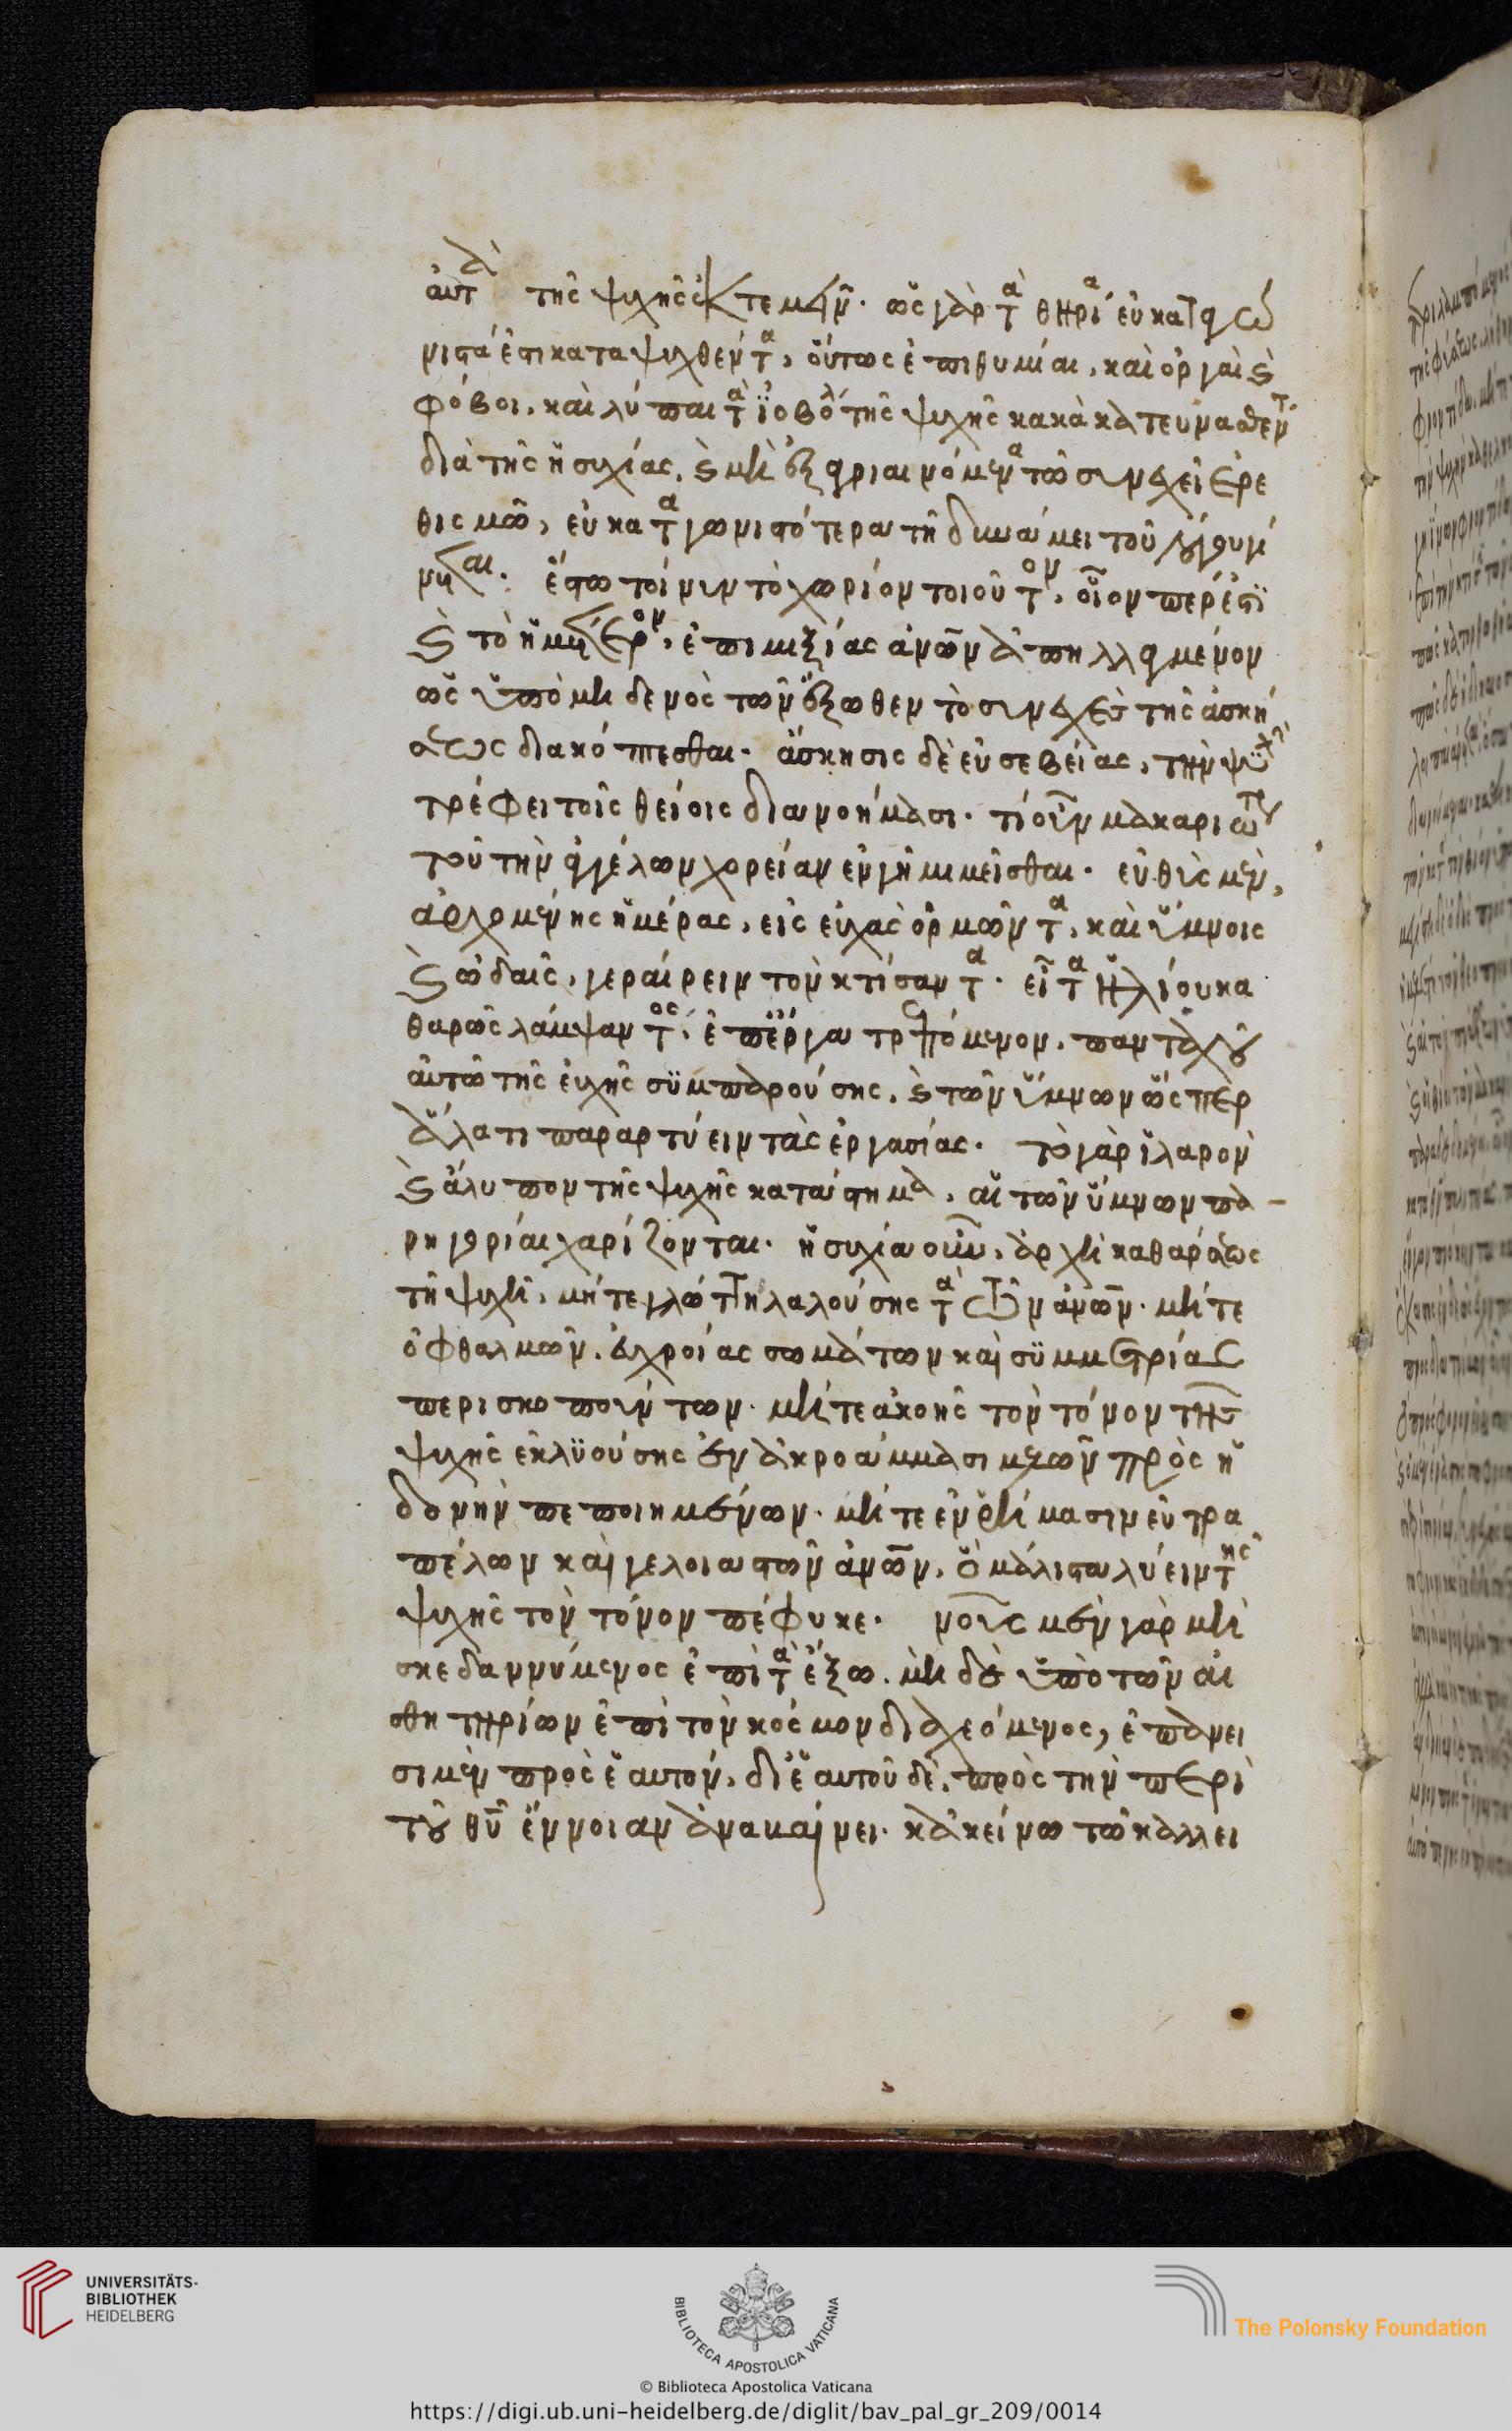 αὐτὰ τῆς ψυχῆς ἐκτεμεῖν. ὡς γὰρ τὰ θηρία εὐκαταγω
νιστά ἐστι καταψυχθέντα, οὕτως ἐπιθυμίαι, καὶ ὀργαὶ καὶ
φόβοι, καὶ λύπαι τὰ ἰοβόλα τῆς ψυχῆς κακὰ κατευνασθέντ
διὰ τῆς ἡσυχίας, καὶ μὴ ἐξαγριαινόμενα τῶ συνεχεῖ ἐρε
θισμῶ, εὐκαταγωνιστότερα τῆ δυνάμει τοῦ λόγου γί
νεται. ἔστω τοίνυν τὸ χωρίον τοιοῦτον, οἷον περ ἐστὶ
καὶ τὸ ἡμέτερον, ἐπιμιξίας ἀνῶν ἀπηλλαγμένον
ὡς ὑπὸ μηδενὸς τῶν ἔξωθεν τὸ συνεχὲς τῆς ἀσκή
σεως διακόπτεσθαι. ἄσκησις δὲ εὐσεβείας, τὴν ψυχὴν
τρέφει τοῖς θείοις διανοήμασι. τί οὖν μακαριώτερον
τοῦ τὴν ἀγγέλων χορείαν ἐν γῆ μιμεῖσθαι. εὐθὺς μὲν,
ἀρχομένης ἡμέρας, εἰς εὐχὰς ὁρμῶντα, καὶ ὕμνοις
καὶ ὠδαῖς, γεραίρειν τὸν κτίσαντα. εἶτα ἡλίου κα
θαρῶς λάμψαντος, ἐπ ἔργα τρεπόμενον, πανταχοῦ
αὐτῶ τῆς εὐχῆς συμπαρούσης, καὶ τῶν ὕμνων ὥσπερ
ἅλατι παραρτύειν τὰς ἐργασίας. τὸ γὰρ ἱλαρὸν
καὶ ἄλυπον τῆς ψυχῆς κατάστημα, αἱ τῶν ὕμνων πα-
ρηγορίαι χαρίζονται. ἡσυχία οὖν, ἀρχὴ καθάρσεως
τῆ ψυχῆ, μήτε γλώττης λαλούσης τὰ τῶν ἀνῶν. μήτε
ὀφθαλμῶν, εὐχροίας σωμάτων καὶ συμμετρίας
περισκοπούντων. μήτε ἀκοῆς τὸν τόνον τῆς
ψυχῆς ἐκλυούσης ἐν ἀκροάμασι μελῶν πρὸς ἡ
δονὴν πεποιημένων. μήτε ἐν ῥήμασιν εὐτρα
πέλων καὶ γελοιαστῶν ἀνῶν, ὃ μάλιστα λύειν τῆς
ψυχῆς τὸν τόνον πέφυκε. νοῦς μὲν γὰρ μὴ
σκεδαννύμενος ἐπὶ τὰ ἔξω. μηδὲ ὑπὸ τῶν αἰ
σθητηρίων ἐπὶ τὸν κόσμον διαχεόμενος, ἐπάνει
σι μὲν πρὸς ἑαυτόν, δι ἑαυτοῦ δὲ, πρὸς τὴν περὶ
τοῦ θυ ἔννοιαν ἀναβαίνει. κἀκείνω τῶ κάλλει
UNIVERSITÄTS-
BIBLIOTHEK
HEIDELBERG
BIBLIOTECA APOSTOLICA VATICANA
The Polonsky Foundation
© Biblioteca Apostolica Vaticana
https://digi.ub.uni-heidelberg.de/diglit/bav_pal_gr_209/0014